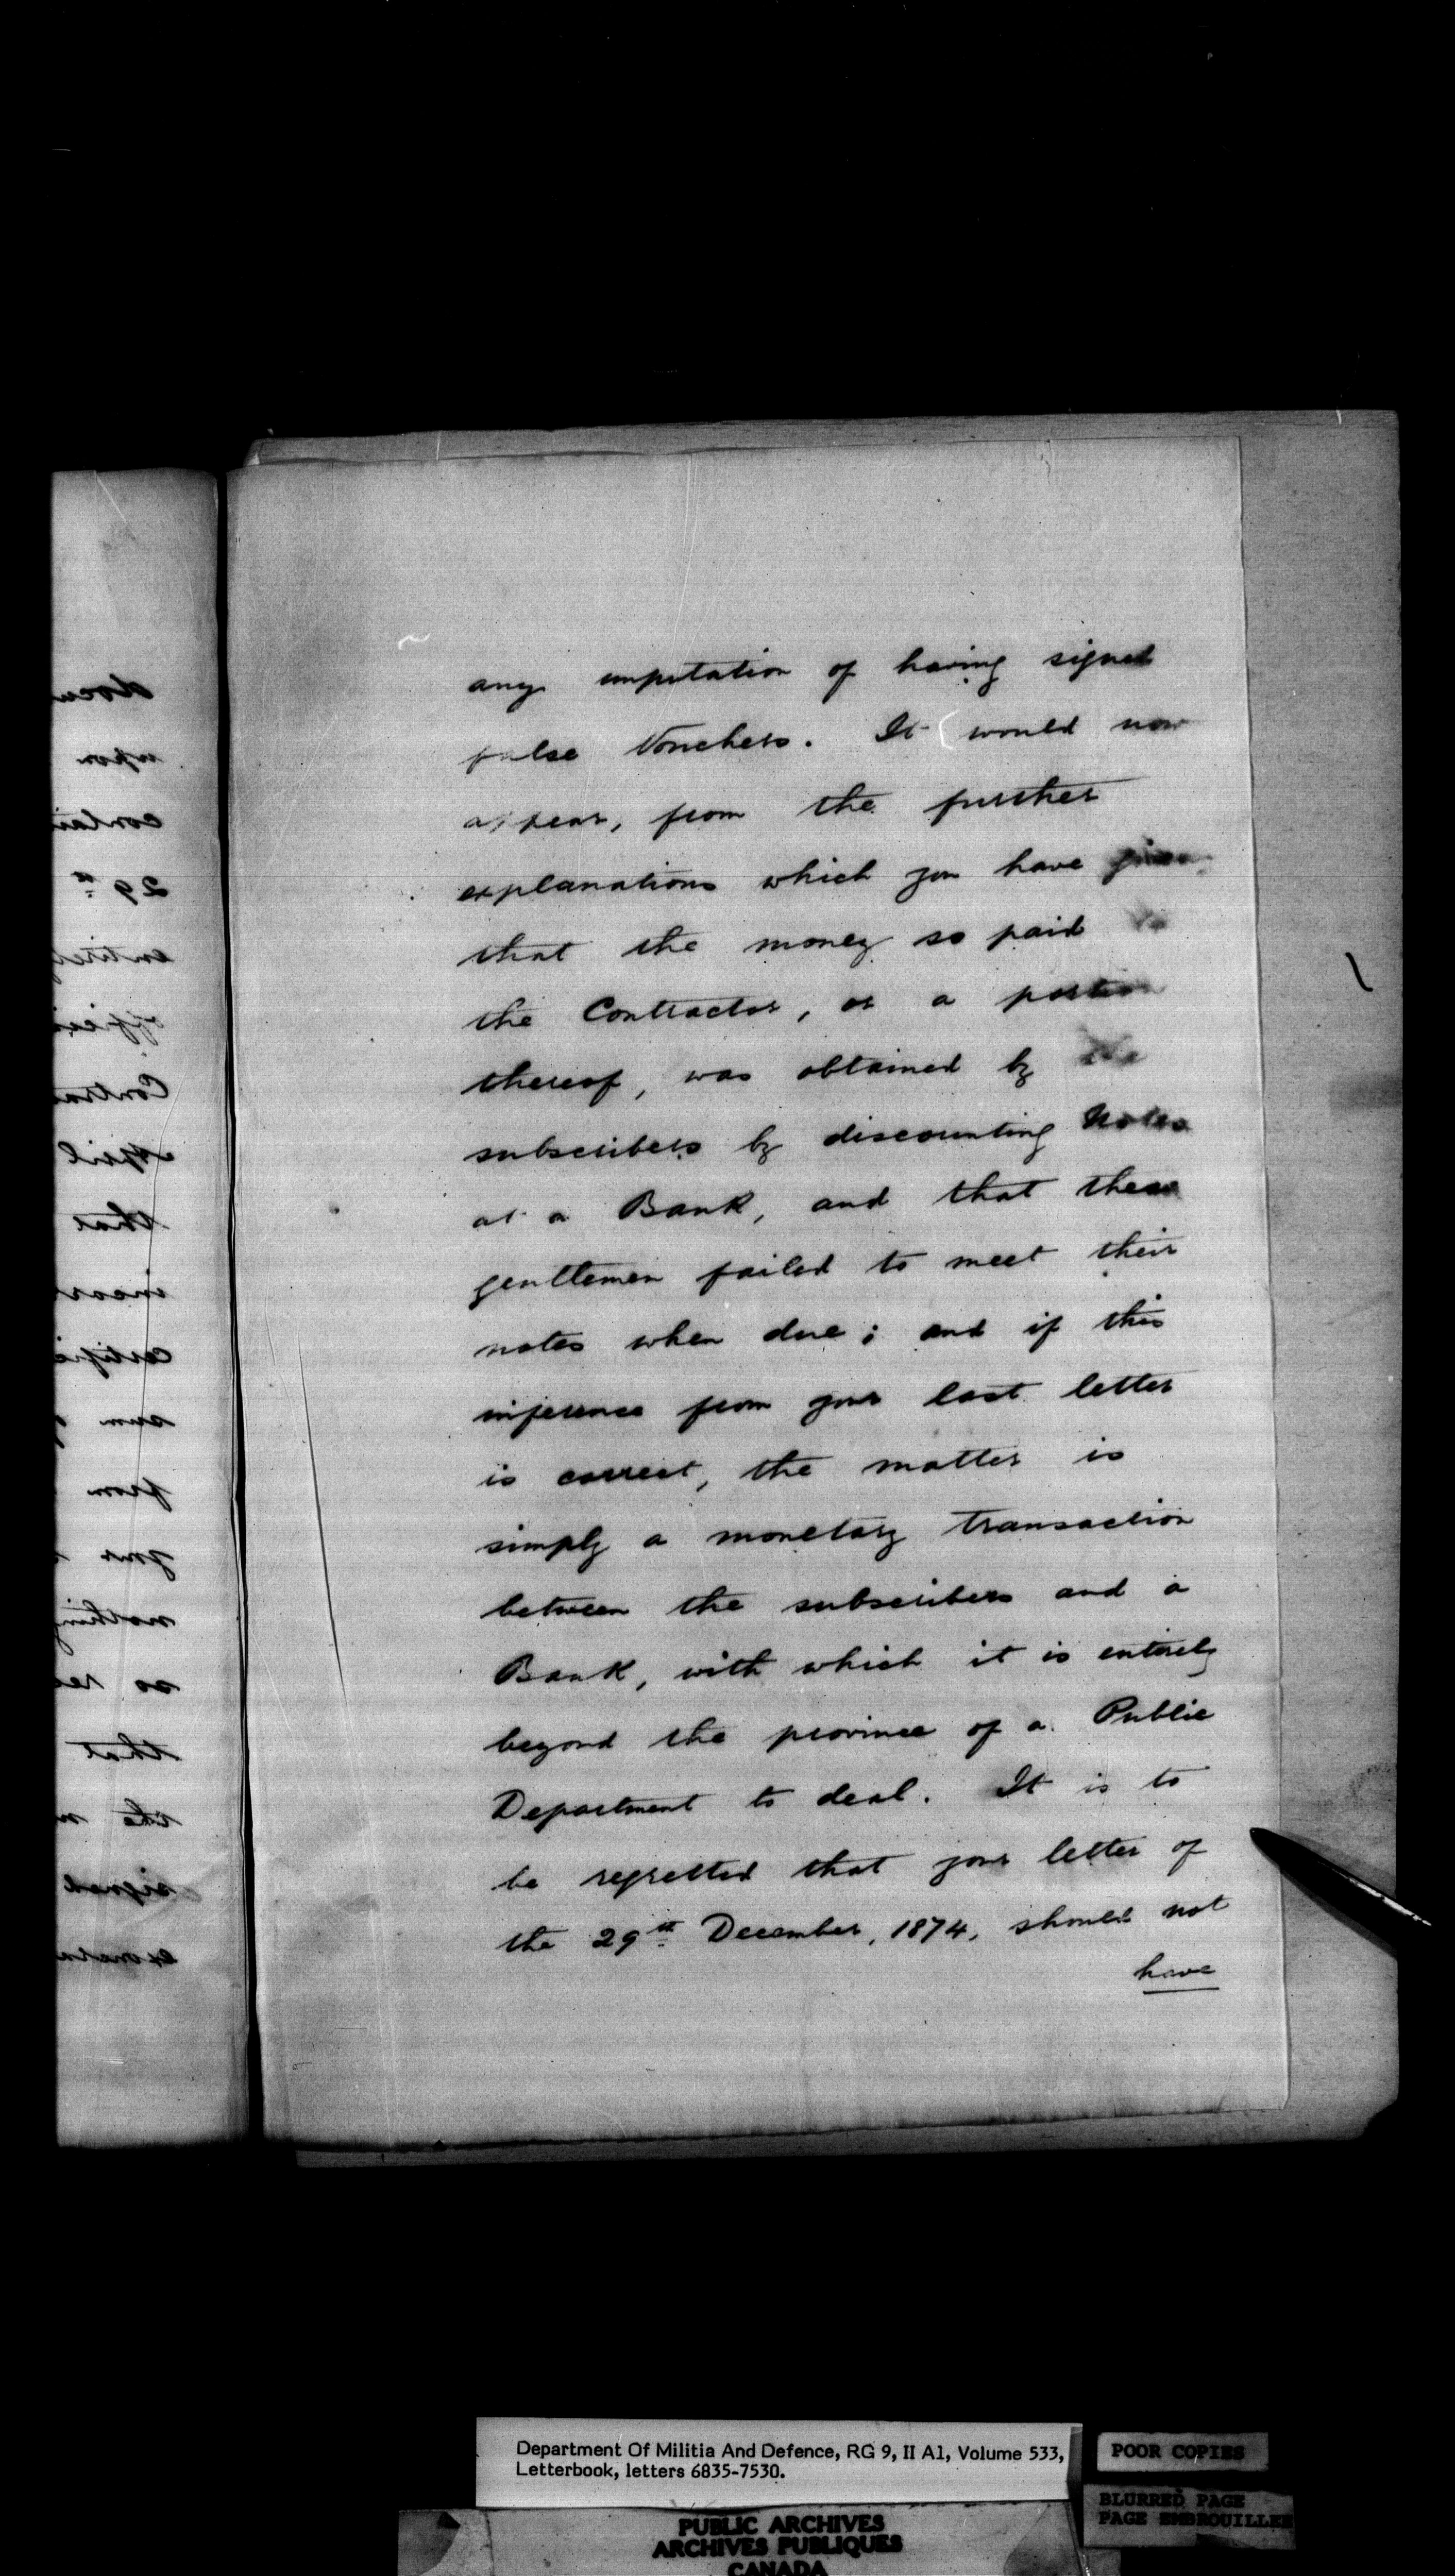 any imputation of having signed
false Vouchers. It would now
appear, from the further
explanations which you have given
that the money so paid to
the Contractor, or a portion
thereof, was obtained by the
subscribers by discounting Notes
at a Bank, and that these
gentlemen failed to meet their
notes when due; and if this
inference from your last letter
is correct, the matter is
simply a monetary transaction
between the subscribers and a
Bank, with which it is entirely
beyond the province of a Public
Department to deal. It is to
be regretted that your letter of
the 29th December, 1874, should not
have
Department Of Militia And Defence, RG 9, II A1, Volume 533,
Letterbook, letters 6835-7530.
POOR COPIES
BLURRED PAGE
PAGE EMBROUILLEE
PUBLIC ARCHIVES
ARCHIVES PUBLIQUES
CANADA